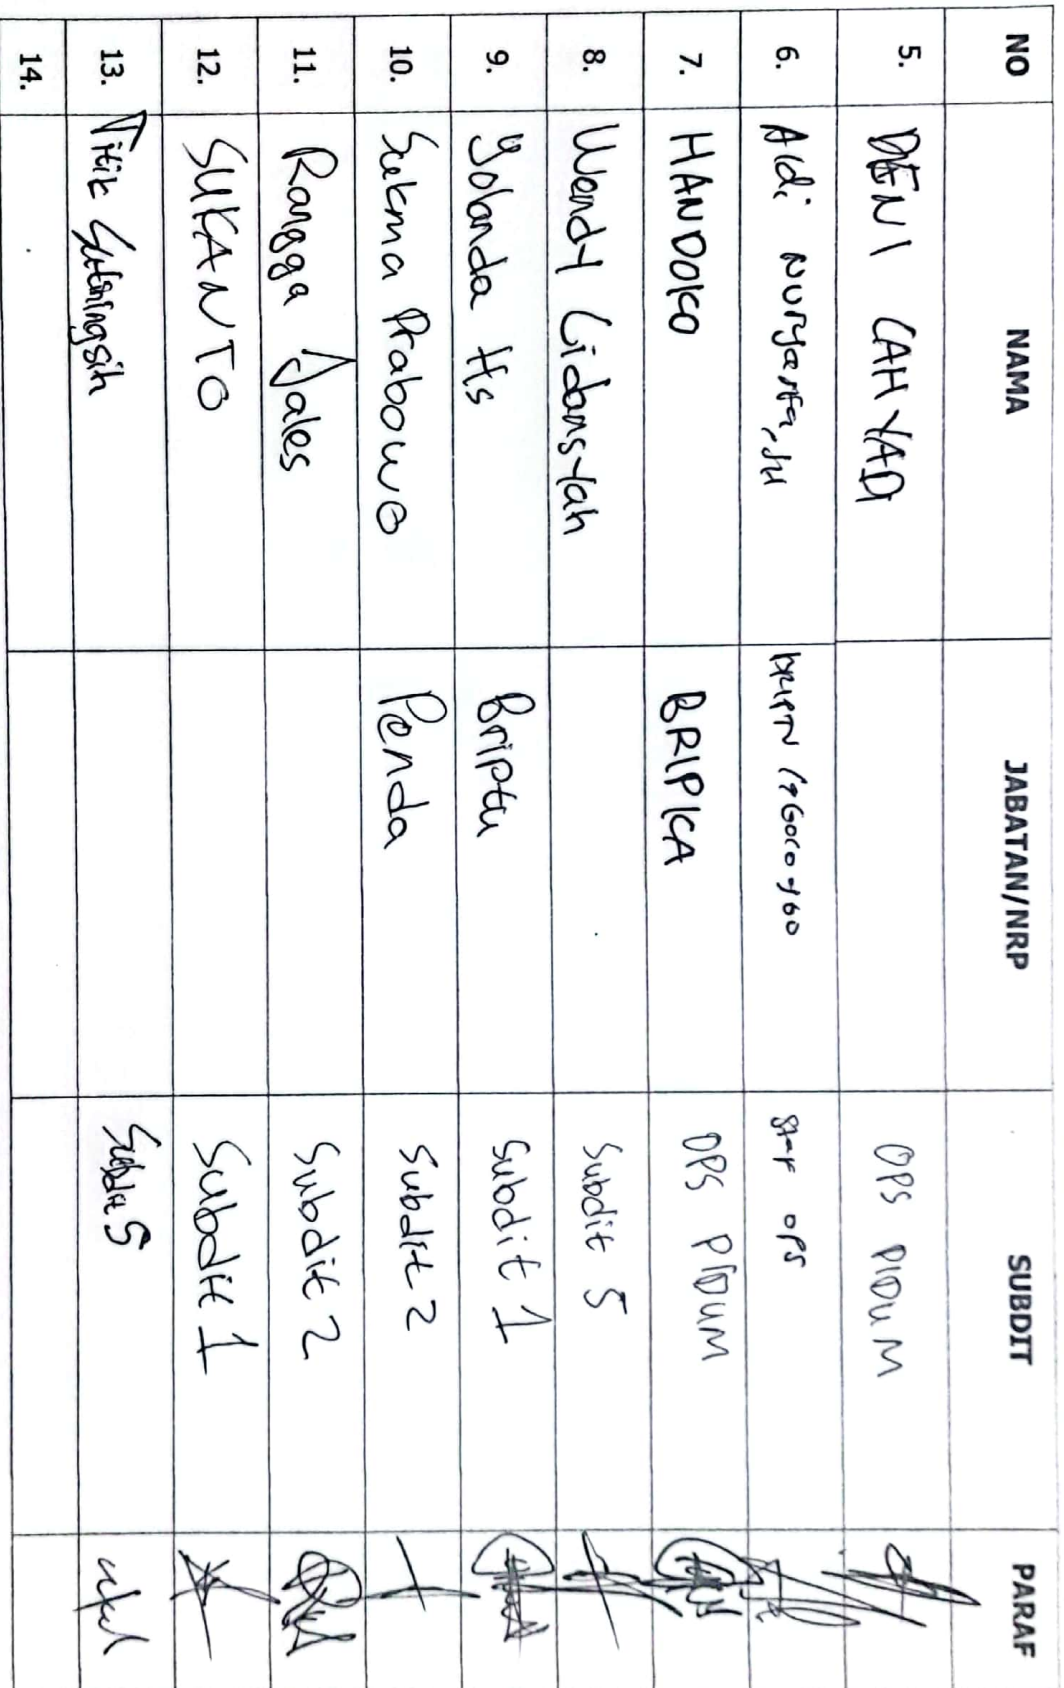 NO NAMA JABATAN/NRP SUBDIT PARAF
5. DENI CAHYADI OPS PIDUM
6. Aldi Nuryanta, SH OPS
7. HANDOKO BRIPKA OPS PIDUM
8. Wendy Lidansyah Subdit 5
9. Yolanda Hs Briptu Subdit 1
10. Sukma Prabowo Penda Subdit 2
11. Rangga Jales Subdit 2
12. SUKANTO Subdit 1
13. Titik Setiningsih Subdit 5
14.